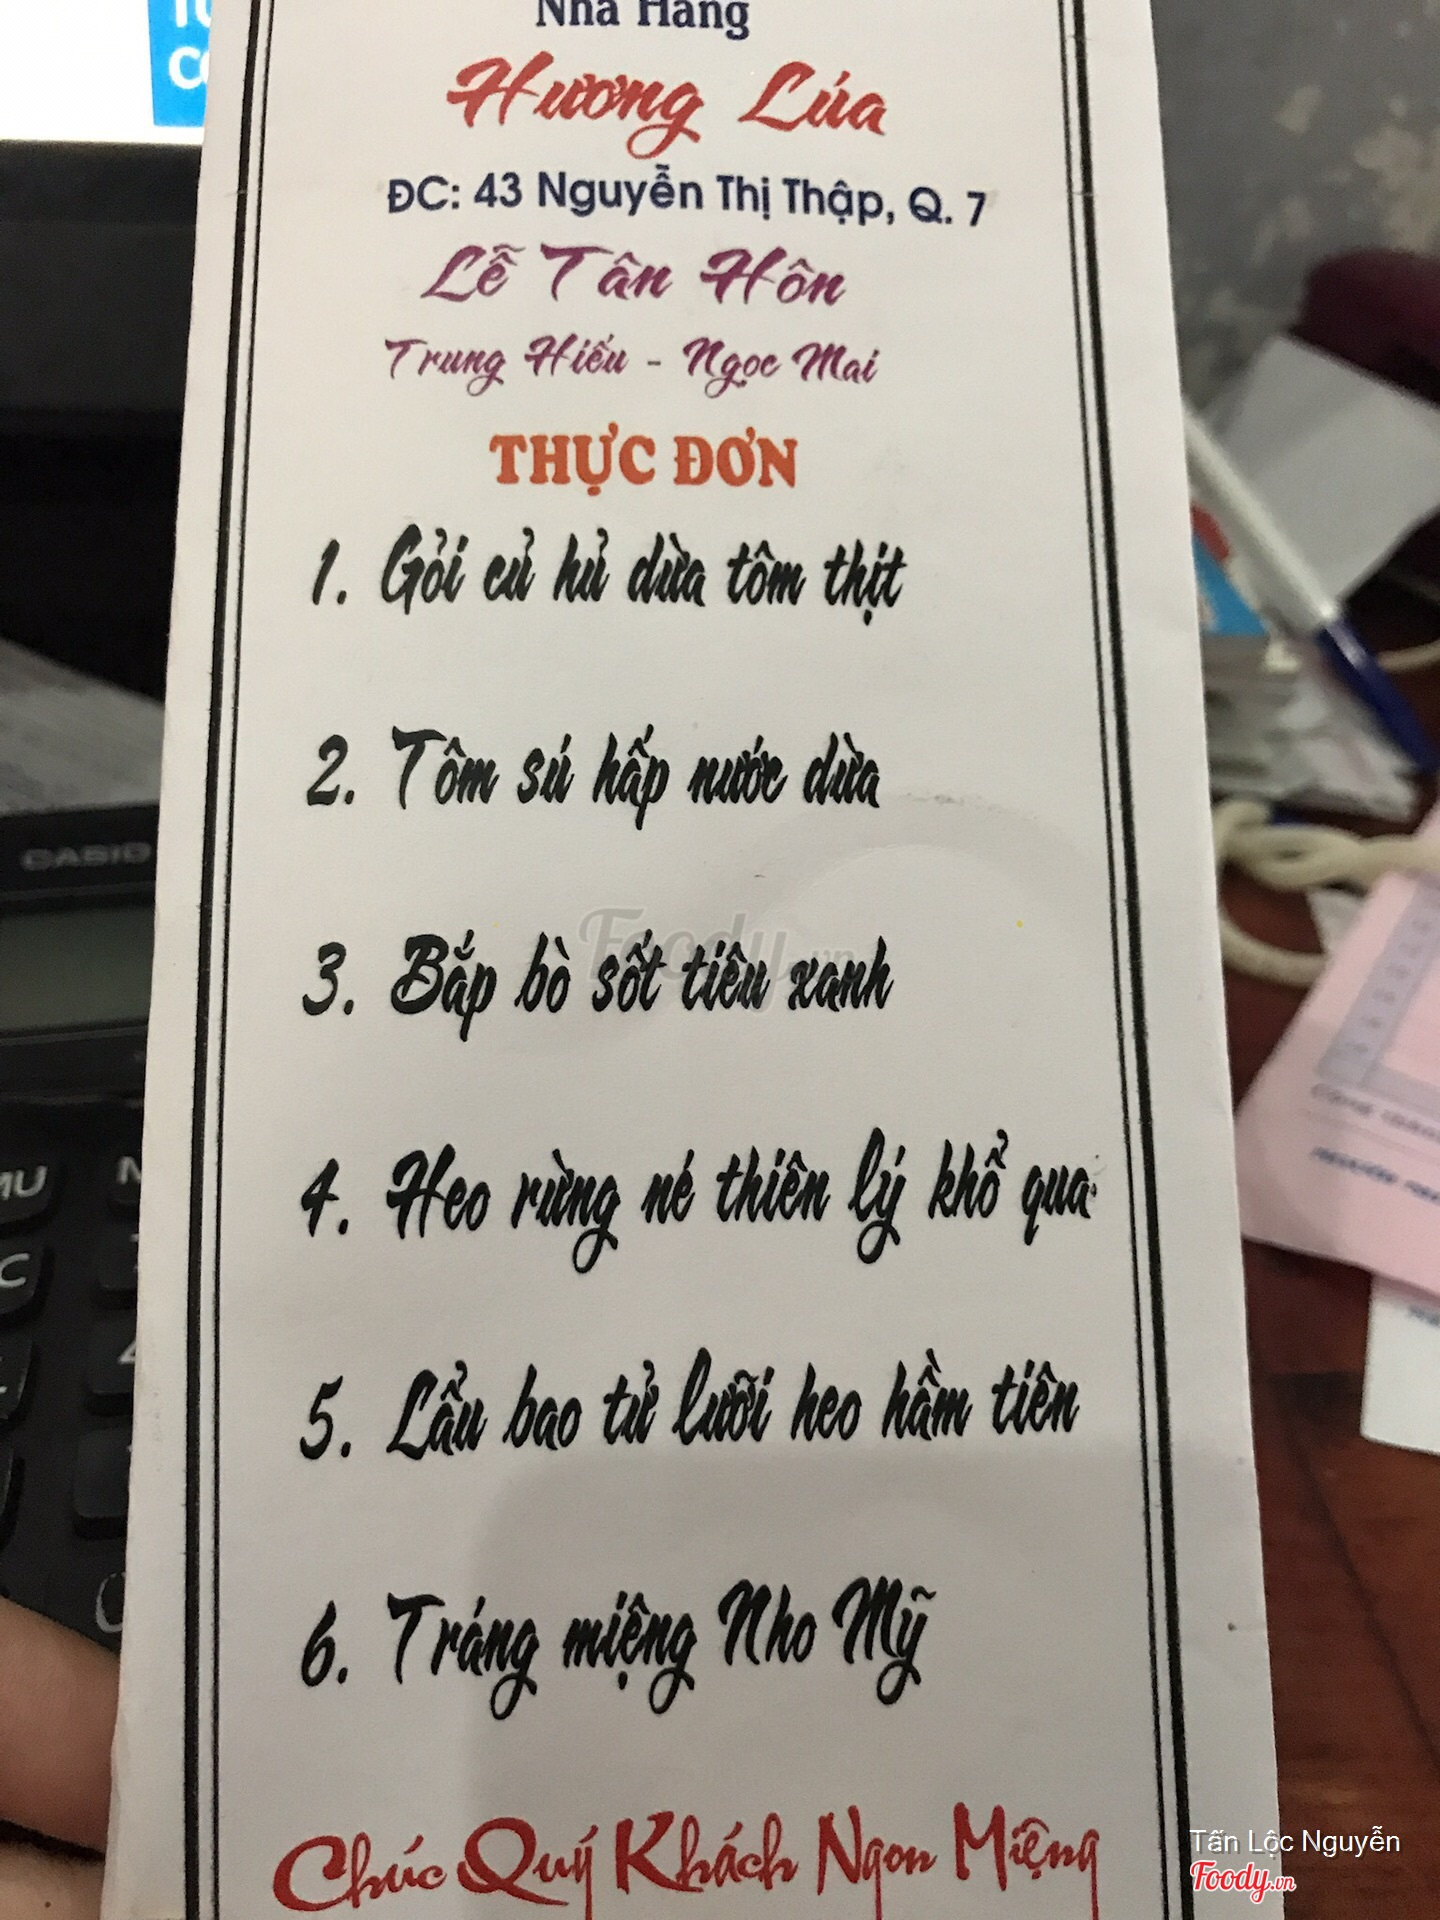 Nhà Hàng
Hương Lúa
ĐC: 43 Nguyễn Thị Thập, Q. 7
Lễ Tân Hôn
Trung Hiếu - Ngọc Mai
THỰC ĐƠN
1. Gỏi củ hủ dừa tôm thịt
2. Tôm sú hấp nước dừa
3. Bắp bò sốt tiêu xanh
4. Heo rừng né thiên lý khổ qua
5. Lẩu bao tử lưỡi heo hầm tiên
6. Tráng miệng Nho Mỹ
Chúc Quý Khách Ngon Miệng
CASIO
Foody.vn
Tấn Lộc Nguyễn
Foody.vn